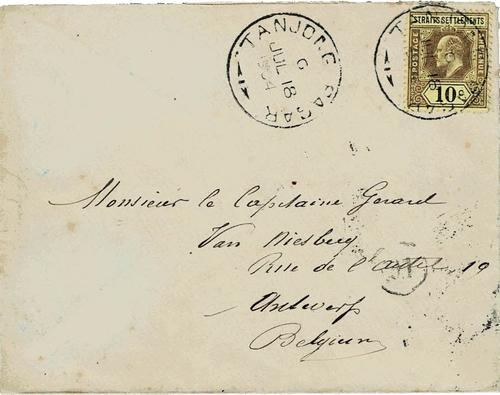 TANJONG PAGAR
G
JUL 18
1904
STRAITS SETTLEMENTS
POSTAGE
10c
Monsieur le Capitaine Gerard
Van
Rue de 19
Antwerp
Belgium